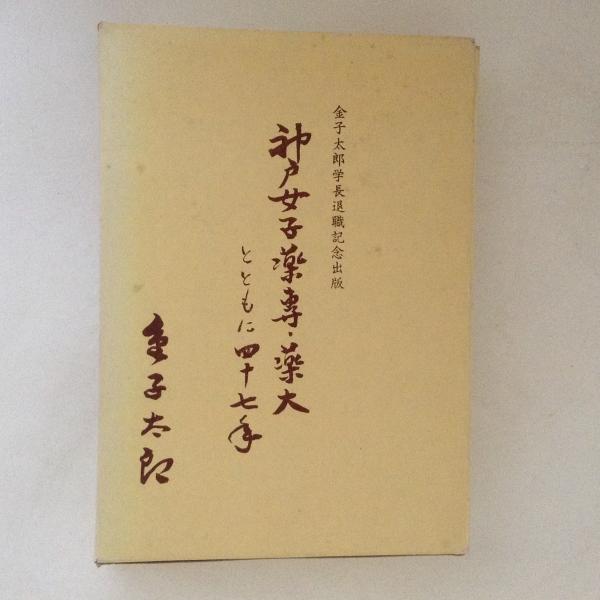 金子太郎学長退職記念出版
神戸女子薬専・薬大
とともに四十七年
金子太郎